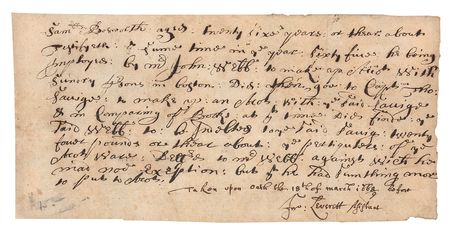 Sam:ll Bosworth aged twenty sixe years or thear about
Testifyeth: yt sume time in ye year sixty five he being
Employed: by mr John Webb: to make up acots with
sundry psons in boston: Did: then goe to Capt: Tho:
Savige: to make up: an Acot with: ye said Savige
& in Comparing of books at yt time Did finde: ye
said Webb: to: be Indebted to ye said Savig: twenty
four pounds or thear about: ye pertiqulers: of ye
Acot weare: Delivd to mr Webb: against which he
mad noe exseption: but yt he had sumthing mor
to put to Acot:
Taken upon oath the 18th of march 1668 before
Jno: Leverett Assistant